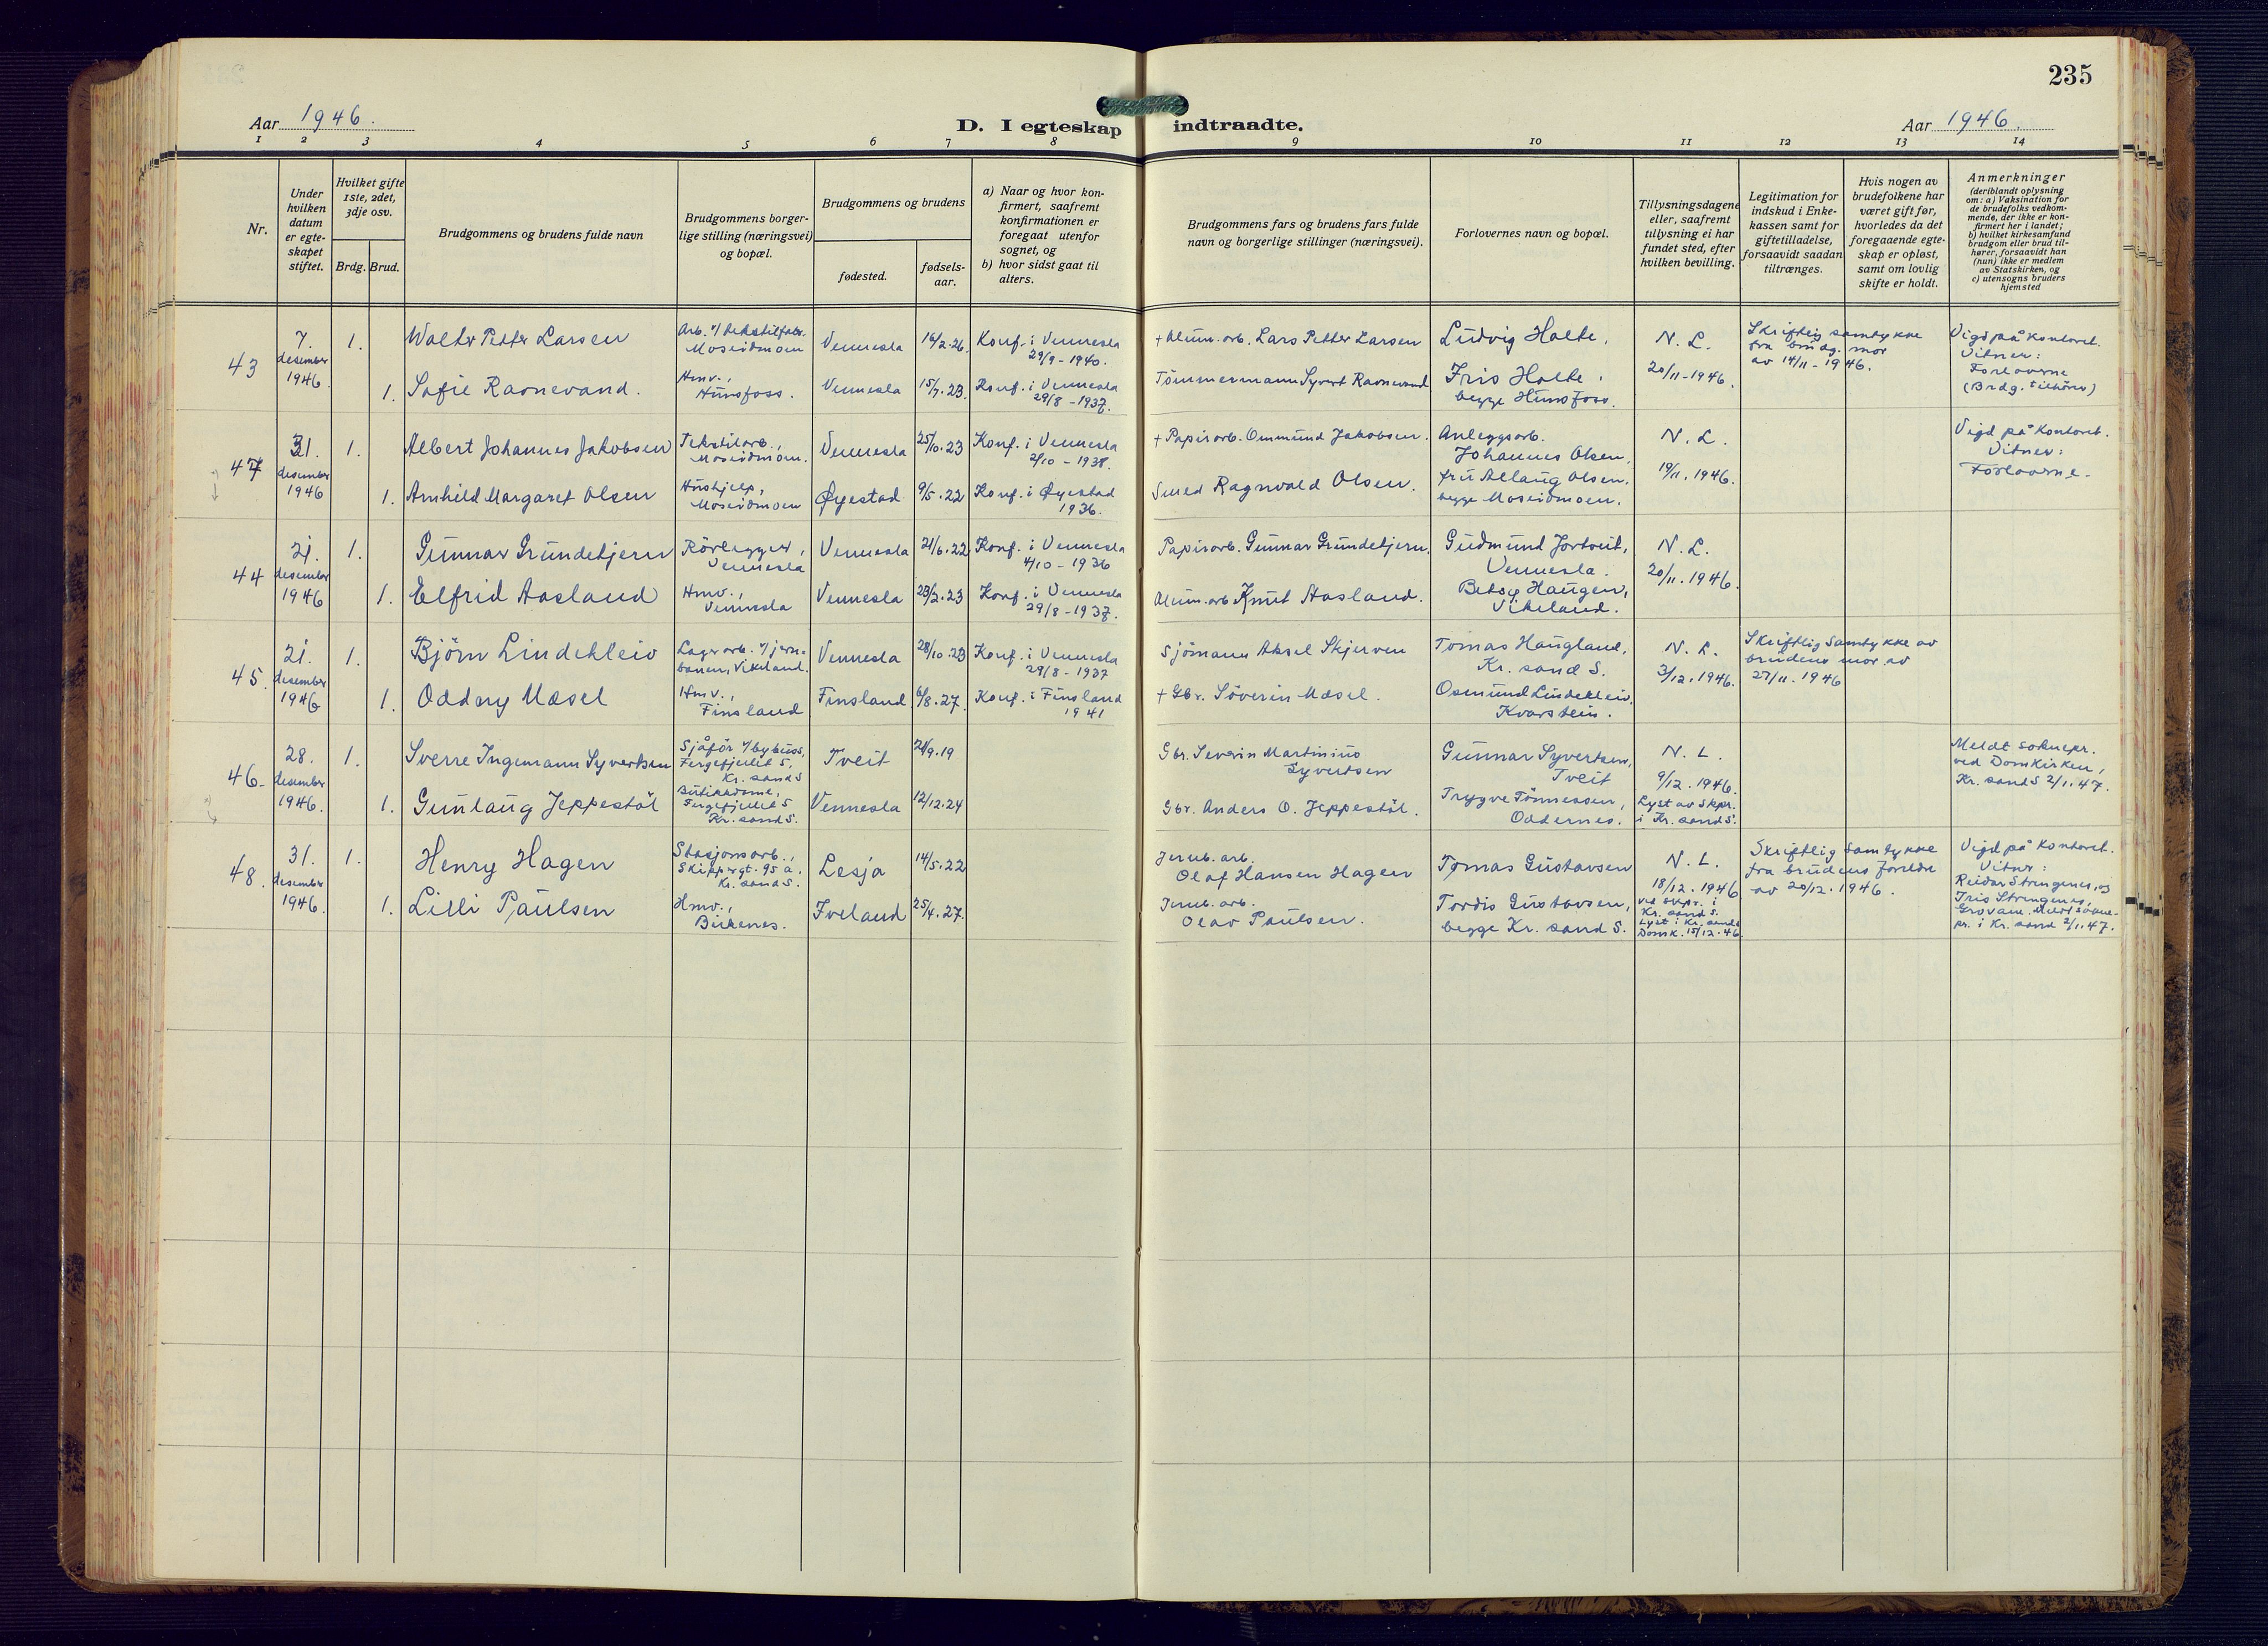 235
Aar 1946.
D. I egteskap indtraadte.
Aar 1946.
1 2 3 4 5 6 7 8 9 10 11 12 13 14
Nr.
Under
hvilken
datum
er egte-
skapet
stiftet.
Hvilket gifte
1ste, 2det,
3dje osv.
Brdg. Brud.
Brudgommens og brudens fulde navn
Brudgommens borger-
lige stilling (næringsvei)
og bopæl.
Brudgommens og brudens
fødested.
fødsels-
aar.
a) Naar og hvor kon-
firmert, saafremt
konfirmationen er
foregaat utenfor
sognet, og
b) hvor sidst gaat til
alters.
Brudgommens fars og brudens fars fulde
navn og borgerlige stillinger (næringsvei).
Forlovernes navn og bopæl.
Tillysningsdagene
eller, saafremt
tillysning ei har
fundet sted, efter
hvilken bevilling.
Legitimation for
indskud i Enke-
kassen samt for
giftetilladelse,
forsaavidt saadan
tiltrænges.
Hvis nogen av
brudefolkene har
været gift før,
hvorledes da det
foregaaende egte-
skap er opløst,
samt om lovlig
skifte er holdt.
Anmerkninger
(deriblandt oplysning
om: a) Vaksination for
de brudefolks vedkom-
mende, der ikke er kon-
firmert her i landet;
b) hvilket kirkesamfund
brudgom eller brud til-
hører, forsaavidt han
(hun) ikke er medlem
av Statskirken, og
c) utensogns bruders
hjemsted
43
7.
desember
1946.
1.
Walter Petter Larsen
Arb. v/ tekstilfabr.
Moseidmoen
Vennesla
16/2.26.
Konf. i Vennesla
29/9-1940.
+ Alum. arb. Lars Petter Larsen
Ludvig Holte.
N. L.
20/11-1946.
Skriftlig samtykke
fra brudg. mor
av 14/11-1946.
Vigd på kontoret.
Vitner:
Forloverne
(Brdg. tilhører)
1.
Sofie Ravnevand.
Hmv.,
Hunsfoss.
Vennesla
15/7.23.
Konf. i Vennesla
29/8-1937.
Tømmermann Syvert Ravnevand
Iris Holte.
begge Hunsfoss.
47
31.
desember
1946
1.
Albert Johannes Jakobsen
Tekstilarb.,
Moseidmoen.
Vennesla
25/10.23
Konf. i Vennesla
2/10-1938.
+ Papirarb. Ommund Jakobsen.
Anleggsarb.
Johannes Olsen,
N. L.
19/11.1946.
Vigd på kontoret.
Vitner:
Forloverne.
1.
Arnhild Margaret Olsen
Hushjelp,
Moseidmoen
Øyestad
9/5.22
Konf. i Øyestad
1936.
Smed Ragnvald Olsen.
fru Allaug Olsen,
begge Moseidmoen.
44
21.
desember
1946
1.
Gunnar Grundetjern
Rørlegger,
Vennesla
Vennesla
21/6.22
Konf. i Vennesla
4/10-1936
Papirarb. Gunnar Grundetjern.
Gudmund Jortveit,
Vennesla.
N. L.
20/11.1946.
1.
Elfrid Aasland
Hmv.,
Vennesla
Vennesla
23/2.23
Konf. i Vennesla
29/8-1937.
Alum. arb. Knut Aasland.
Betsy Haugen,
Vikeland.
45.
21.
desember
1946
1.
Bjørn Lindekleiv
Lagerarb. v/ jern-
banen, Vikeland.
Vennesla
28/10.23
Konf. i Vennesla
29/8-1937
Sjømann Aksel Skjerven
Tomas Haugland,
Kr. sand S.
N. L.
3/12.1946.
Skriftlig samtykke av
brudens mor av
27/11.1946
1.
Oddny Mæsel
Hmv.,
Finsland
Finsland
6/8.27.
Konf. i Finsland
1941
+ Gbr. Søverin Mæsel.
Osmund Lindekleiv,
Kvarstein.
46.
28.
desember
1946.
1.
Sverre Ingemann Syvertsen
Sjåfør v/ bybuss,
Fergefjellet 5,
Kr. sand S
Tveit
21/9.19
Gbr. Severin Martinius
Syvertsen
Gunnar Syvertsen,
Tveit
N. L.
9/12.1946.
Lyst av Skpr.
i Kr. sand S.
Meldt soknepr.
ved Domkirken,
Kr. sand S 2/1.47.
1.
Gunlaug Jeppestøl
Butikkdame,
Fergefjellet 5
Kr. sand S.
Vennesla
12/12.24
Gbr. Anders O. Jeppestøl.
Trygve Tønnessen,
Oddernes.
48.
31.
desember
1946.
1.
Henry Hagen
Stasjonsarb.,
Skippergt. 95 a,
Kr. sand S.
Lesja
14/5.22
Jernb. arb.
Olaf Hansen Hagen
Tomas Gustavsen
N. L.
18/12.1946
ved sokpr. i
Kr. sand S.
Lyst i Kr. sands
Domk. 15/12.46.
Skriftlig samtykke
fra brudens foreldre
av 20/12.1946.
Vigd på kontoret.
Vitner:
Reidar Strengenes, og
Iris Strengenes,
Grovane. Meldt sokne-
pr. i Kr. sand 2/1.47.
1.
Lilli Paulsen
Hmv.,
Birkenes.
Iveland
25/4.27.
Jernb. arb.
Olav Paulsen.
Tordis Gustavsen,
begge Kr. sand S.